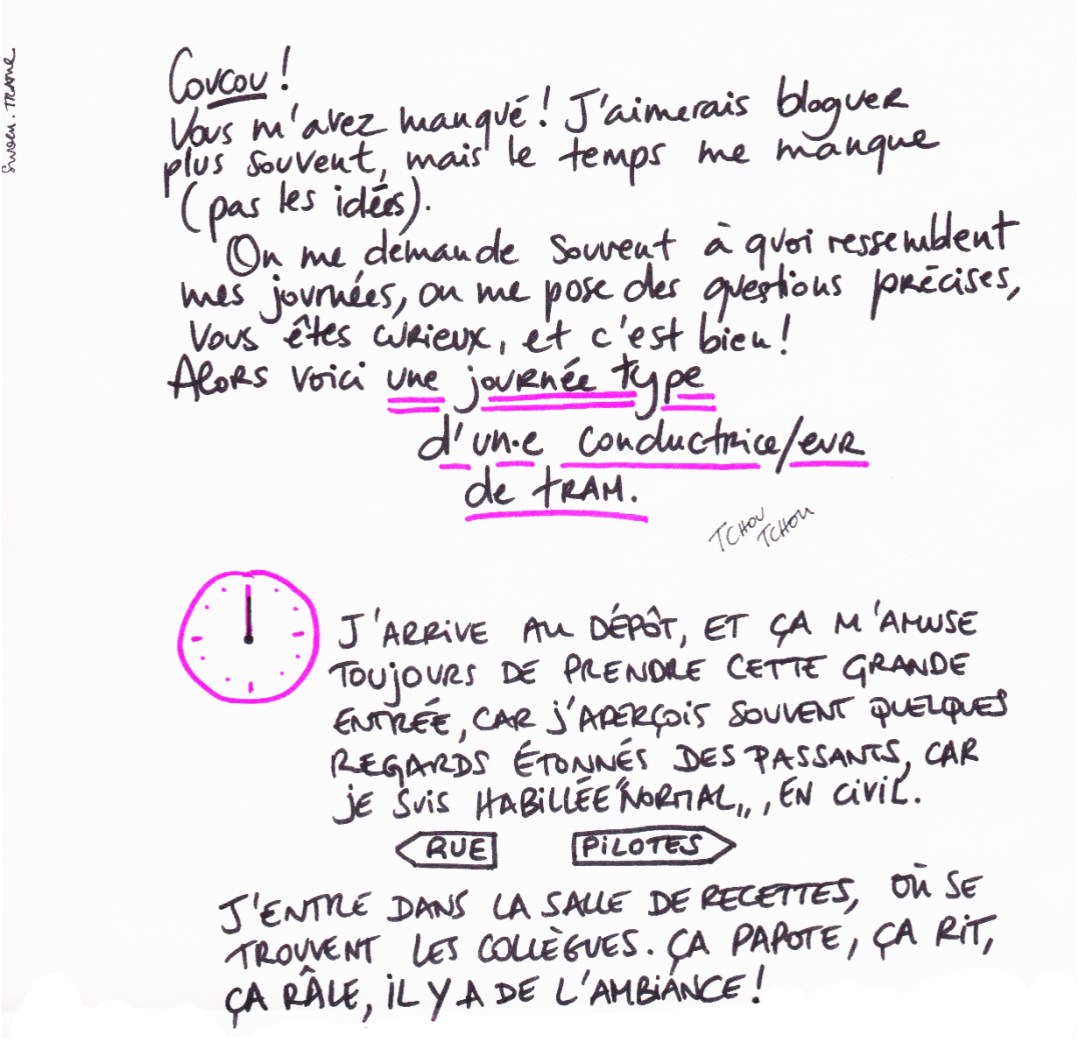 Coucou !
Vous m'avez manqué ! J'aimerais bloguer
plus souvent, mais le temps me manque
(pas les idées).
On me demande souvent à quoi ressemblent
mes journées, on me pose des questions précises,
vous êtes curieux, et c'est bien !
Alors voici une journée type
d'un·e conductrice/eur
de tram.
TCHOU
TCHOU
J'ARRIVE AU DÉPÔT, ET ÇA M'AMUSE
TOUJOURS DE PRENDRE CETTE GRANDE
ENTRÉE, CAR J'APERÇOIS SOUVENT QUELQUES
REGARDS ÉTONNÉS DES PASSANTS, CAR
JE SUIS HABILLÉE "NORMAL„, EN CIVIL.
RUE PILOTES
J'ENTRE DANS LA SALLE DE RECETTES, OÙ SE
TROUVENT LES COLLÈGUES. ÇA PAPOTE, ÇA RIT,
ÇA RÂLE, IL Y A DE L'AMBIANCE !